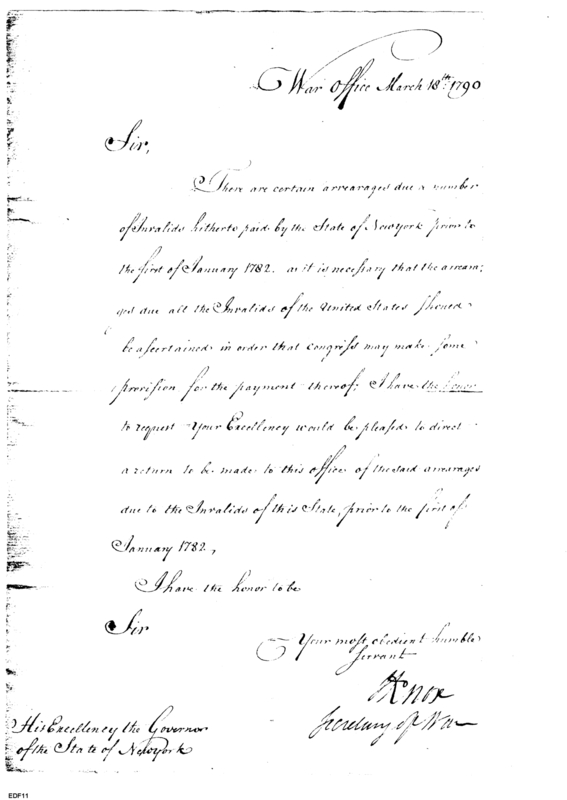 War Office March 18th 1790
Sir,
There are certain arrearages due a number
of Invalids hitherto paid by the State of Newyork prior to
the first of January 1782. as it is necessary that the arrear=
ages due all the Invalids of the United States should
be ascertained in order that Congress may make some
provision for the payment thereof; I have the honor
to request Your Excellency would be pleased to direct
a return to be made to this office of the said arrearages
due to the Invalids of this State, prior to the first of
January 1782,
I have the honor to be
Sir
Your most obedient humble
servant
HKnox
Secretary of War
His Excellency the Governor
of the State of Newyork
EDF11